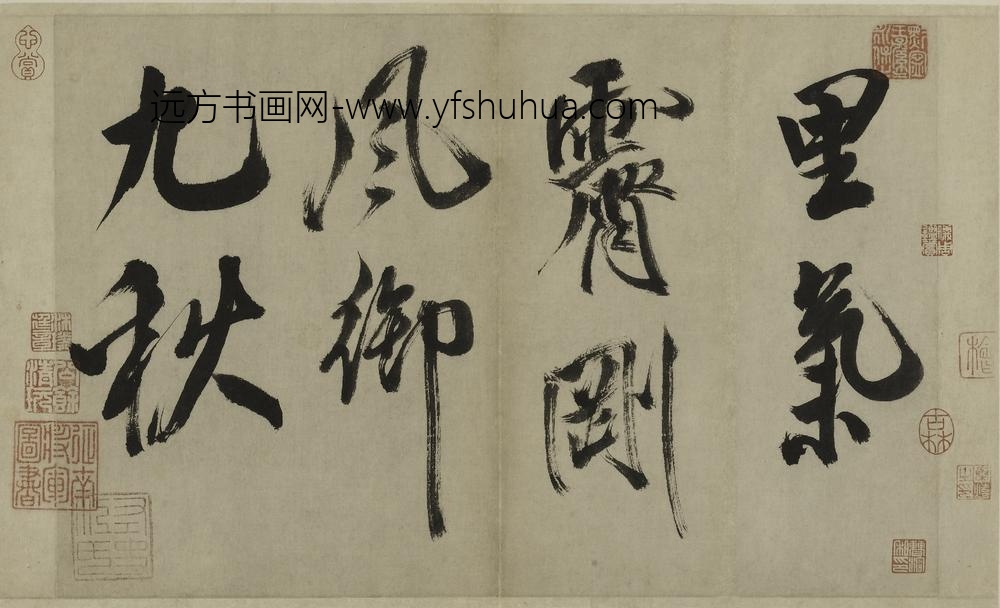 里氣
霽剛
風御
九秋
远方书画网-www.yfshuhua.com
古林